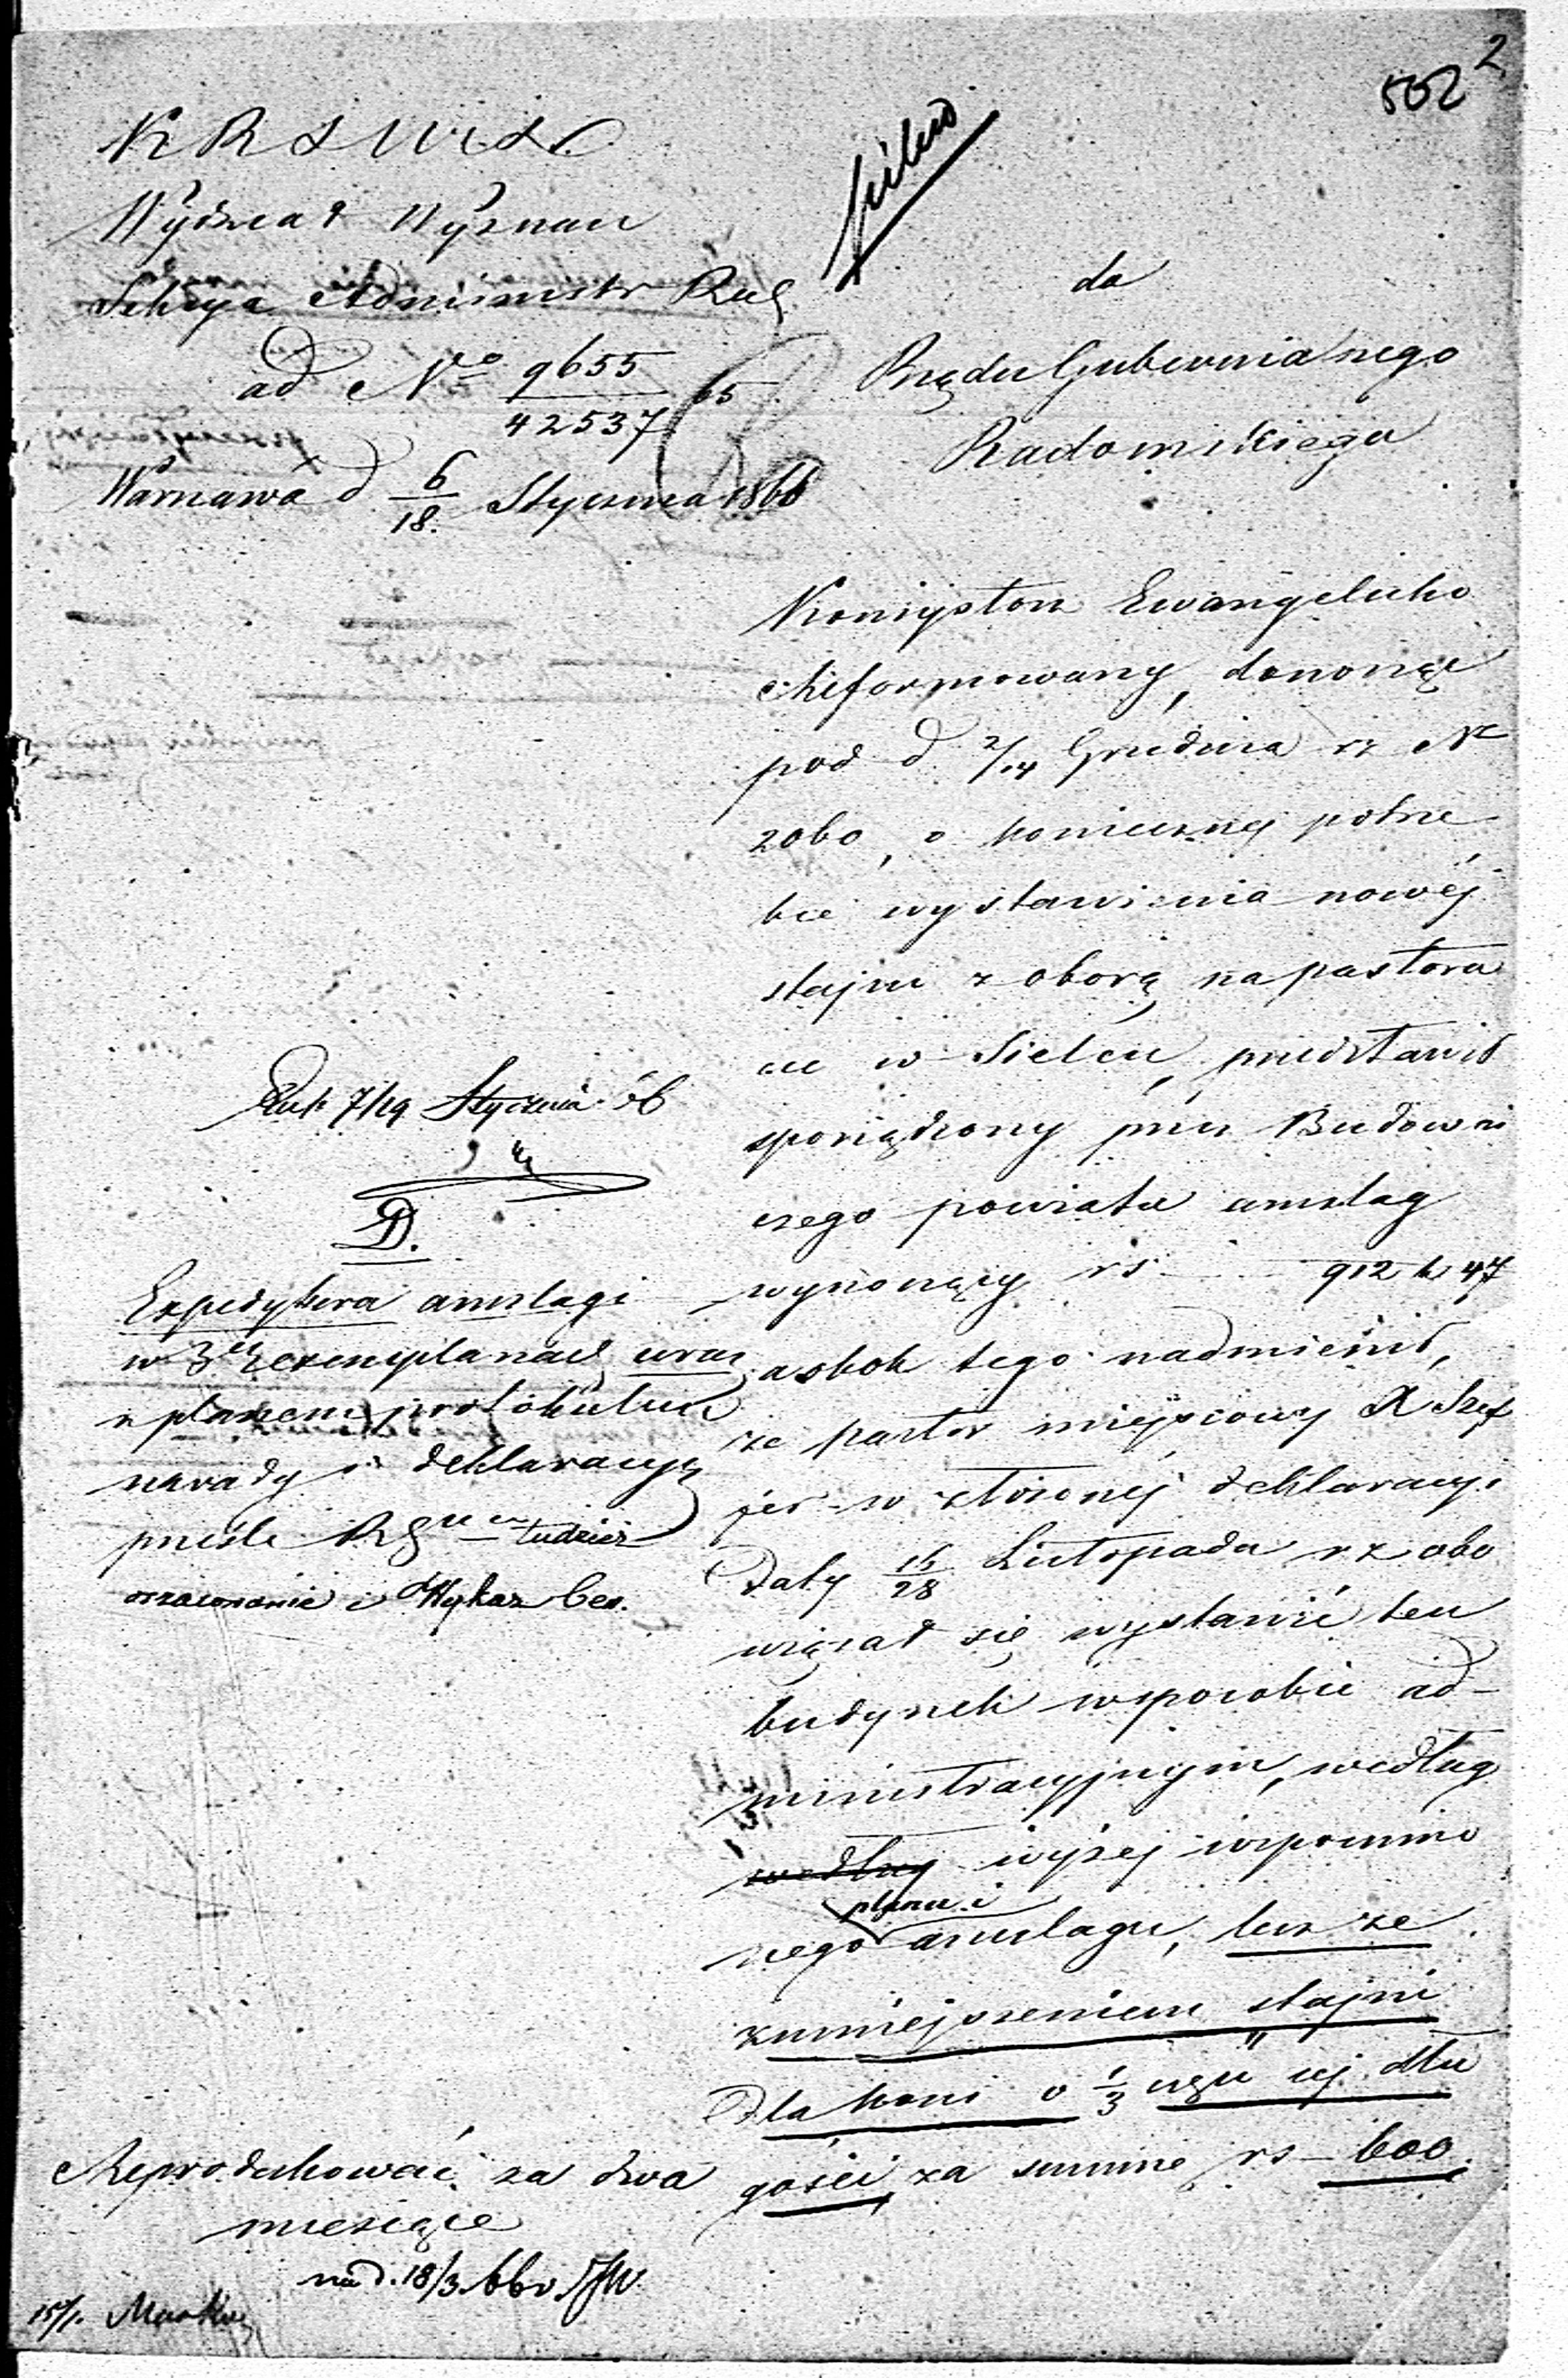 2
502
pilno
K R S W i D
Wydział Wyznań
Sekcya Administr Rel
ad No 9655/42537 65
Warszawa d 6/18 Stycznia 1866
do
Rządu Gubernialnego
Radomskiego
Konsystorz Ewangelicko
Reformowany, donosząc
pod d 2/14 Grudnia rz No
2060, o koniecznej potrze
bie wystawienia nowéj
stajni z oborą na pastora
cie w Sielcu, przedstawił
sporządzony przez Budowni
czego powiatu anszlag
wynoszący rs 912 k 47
a obok tego nadmienił,
że pastor miejscowy X Szef
fer w złożonej deklaracyi
Daty 16/28 Listopada rz obo
wiązał się wystawić ten
budynek w sposobie ad-
ministracyjnym, według
według wyżej wspomnio
planu i
nego anszlagu, lecz ze
zmniejszeniem stajni
dla koni o 1/3 część jej dłu
gości, za summę rs – 600.
7/19 Stycznia 66
D.
Expedytura anszlagi
w 3ch exemplarzach wraz
z planem protokułem
narady i deklaracyą
prześle RGu tudzież
oszacowanie i Wykaz Cen.
Reprodukować za dwa
miesiące
na d. 18/3 66 r.
15/1.